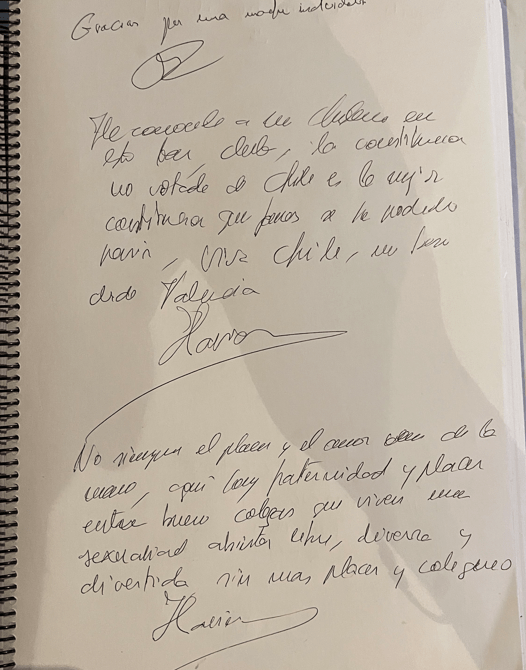 Gracias por una noche inolvidable
He conocido a un chileno en
este bar, chulo, la constitucion
no votada de Chile es la mejor
constitucion que jamas se ha podido
hacer, viva Chile, un beso
desde Valencia
No siempre el placer y el amor van de la
mano, aqui hay fraternidad y placer
entre bueno colegas que viven una
sexualidad abierta libre, diversa y
divertida sin mas placer y colegueo